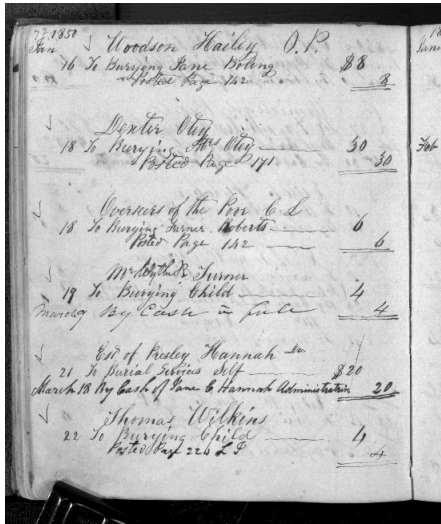 73 1850
Jan Woodson Hailey O.P.
16 To Burying Jane Boling $8
Posted Page 142 8
Dexter Otey
18 To Burying Mrs Otey 30
Posted Page 171 30
Overseers of the Poor C L
18 To Burying Turner Roberts 6
Posted Page 142 6
Mr Turner
19 To Burying Child 4
By Cash in full 4
Est of Presley Hannah Dr
21 To Burial Services Self $20
March 18 By Cash of Jane C Hannah Administratrix 20
Thomas Wilkins
22 To Burying Child 4
Posted Page 224 L P 4
18
Jan
Feb